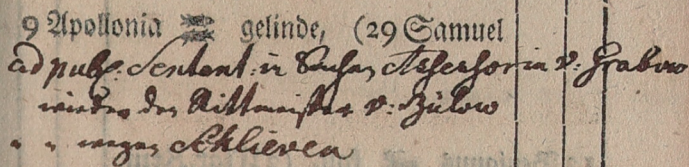 9 Apollonia gelinde, (29 Samuel
ad publ: Sentent: in Sachen Assessorin v: Grabow
wieder den Rittmeister v: Bülow
" " wegen Schlieven